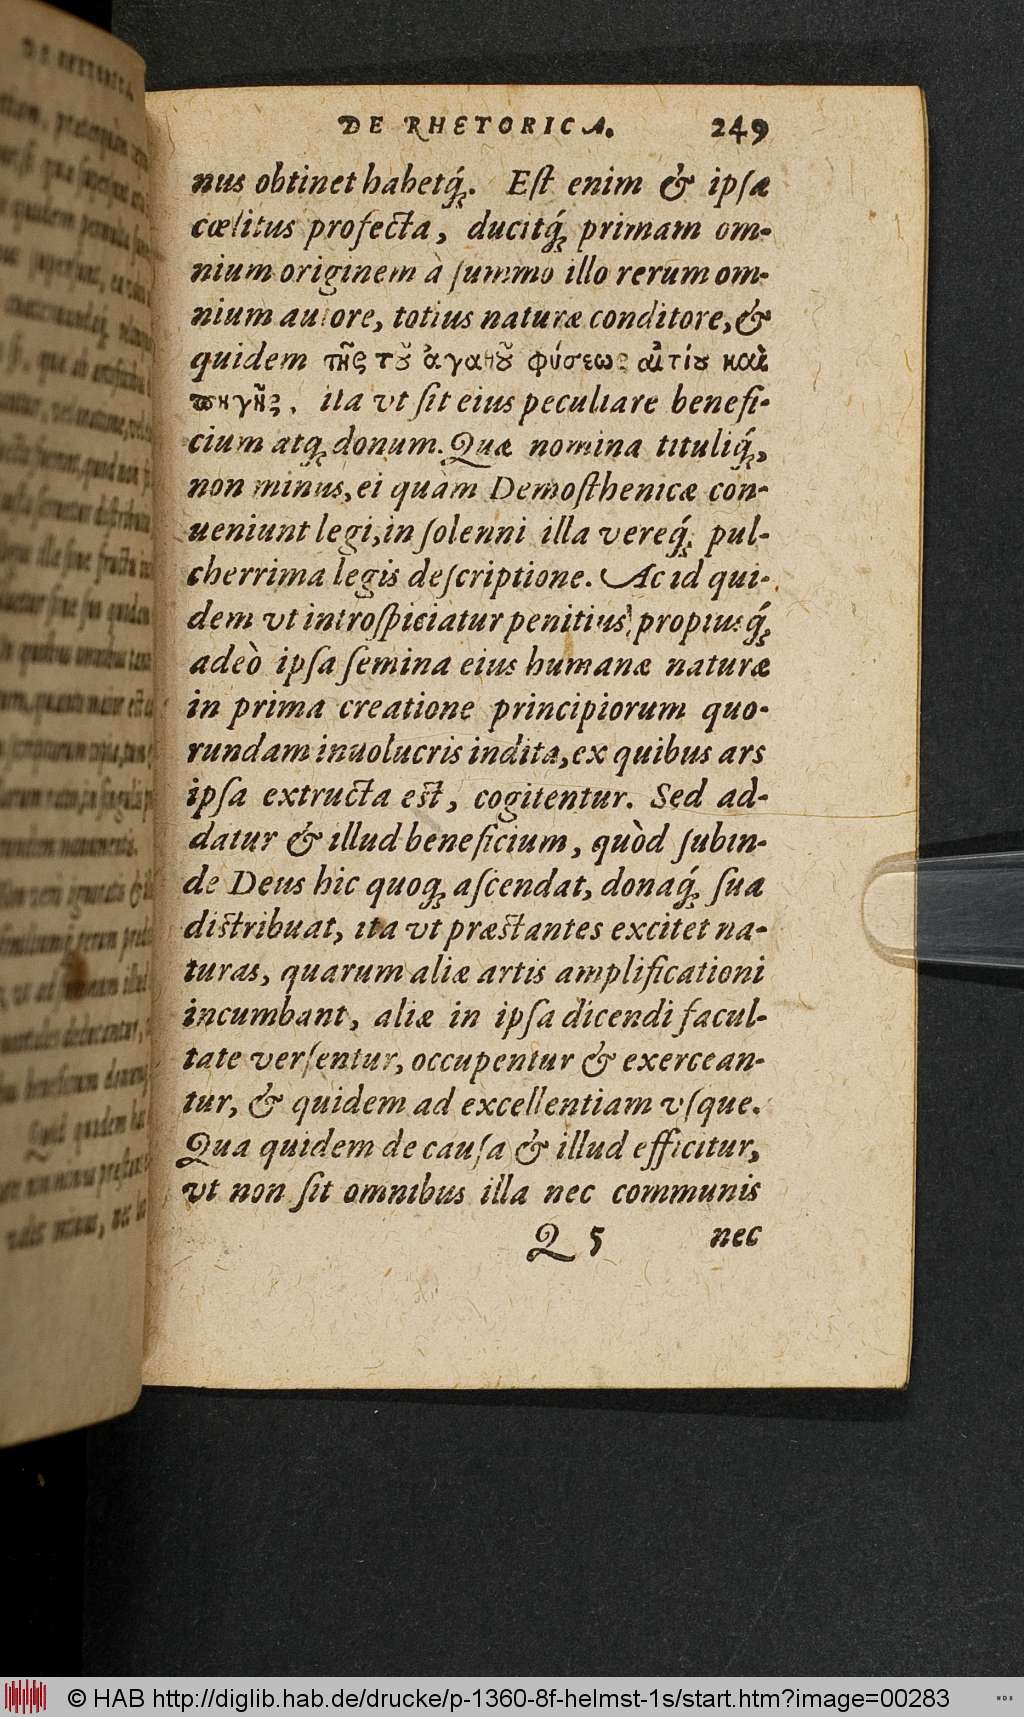 DE RHETORICA. 249
nus obtinet habetq́;. Est enim & ipsæ
cœlitus profecta, ducitq́; primam om-
nium originem à summo illo rerum om-
nium autore, totius naturæ conditore, &
quidem τῆς τοῦ ἀγαθοῦ φύσεως αἰτίου καὶ
πηγῆς, ita vt sit eius peculiare benefi-
cium atq; donum. Quæ nomina tituliq́;,
non minus, ei quàm Demosthenicæ con-
ueniunt legi, in solenni illa vereq́; pul-
cherrima legis descriptione. Ac id qui-
dem vt introspiciatur penitius, propiusq́;
adeò ipsa semina eius humanæ naturæ
in prima creatione principiorum quo-
rundam inuolucris indita, ex quibus ars
ipsa extructa est, cogitentur. Sed ad-
datur & illud beneficium, quòd subin-
de Deus hic quoq; ascendat, donaq́; sua
distribuat, ita vt præstantes excitet na-
turas, quarum aliæ artis amplificationi
incumbant, aliæ in ipsa dicendi facul-
tate versentur, occupentur & exercean-
tur, & quidem ad excellentiam vsque.
Qua quidem de causa & illud efficitur,
vt non sit omnibus illa nec communis
Q 5 nec
© HAB http://diglib.hab.de/drucke/p-1360-8f-helmst-1s/start.htm?image=00283